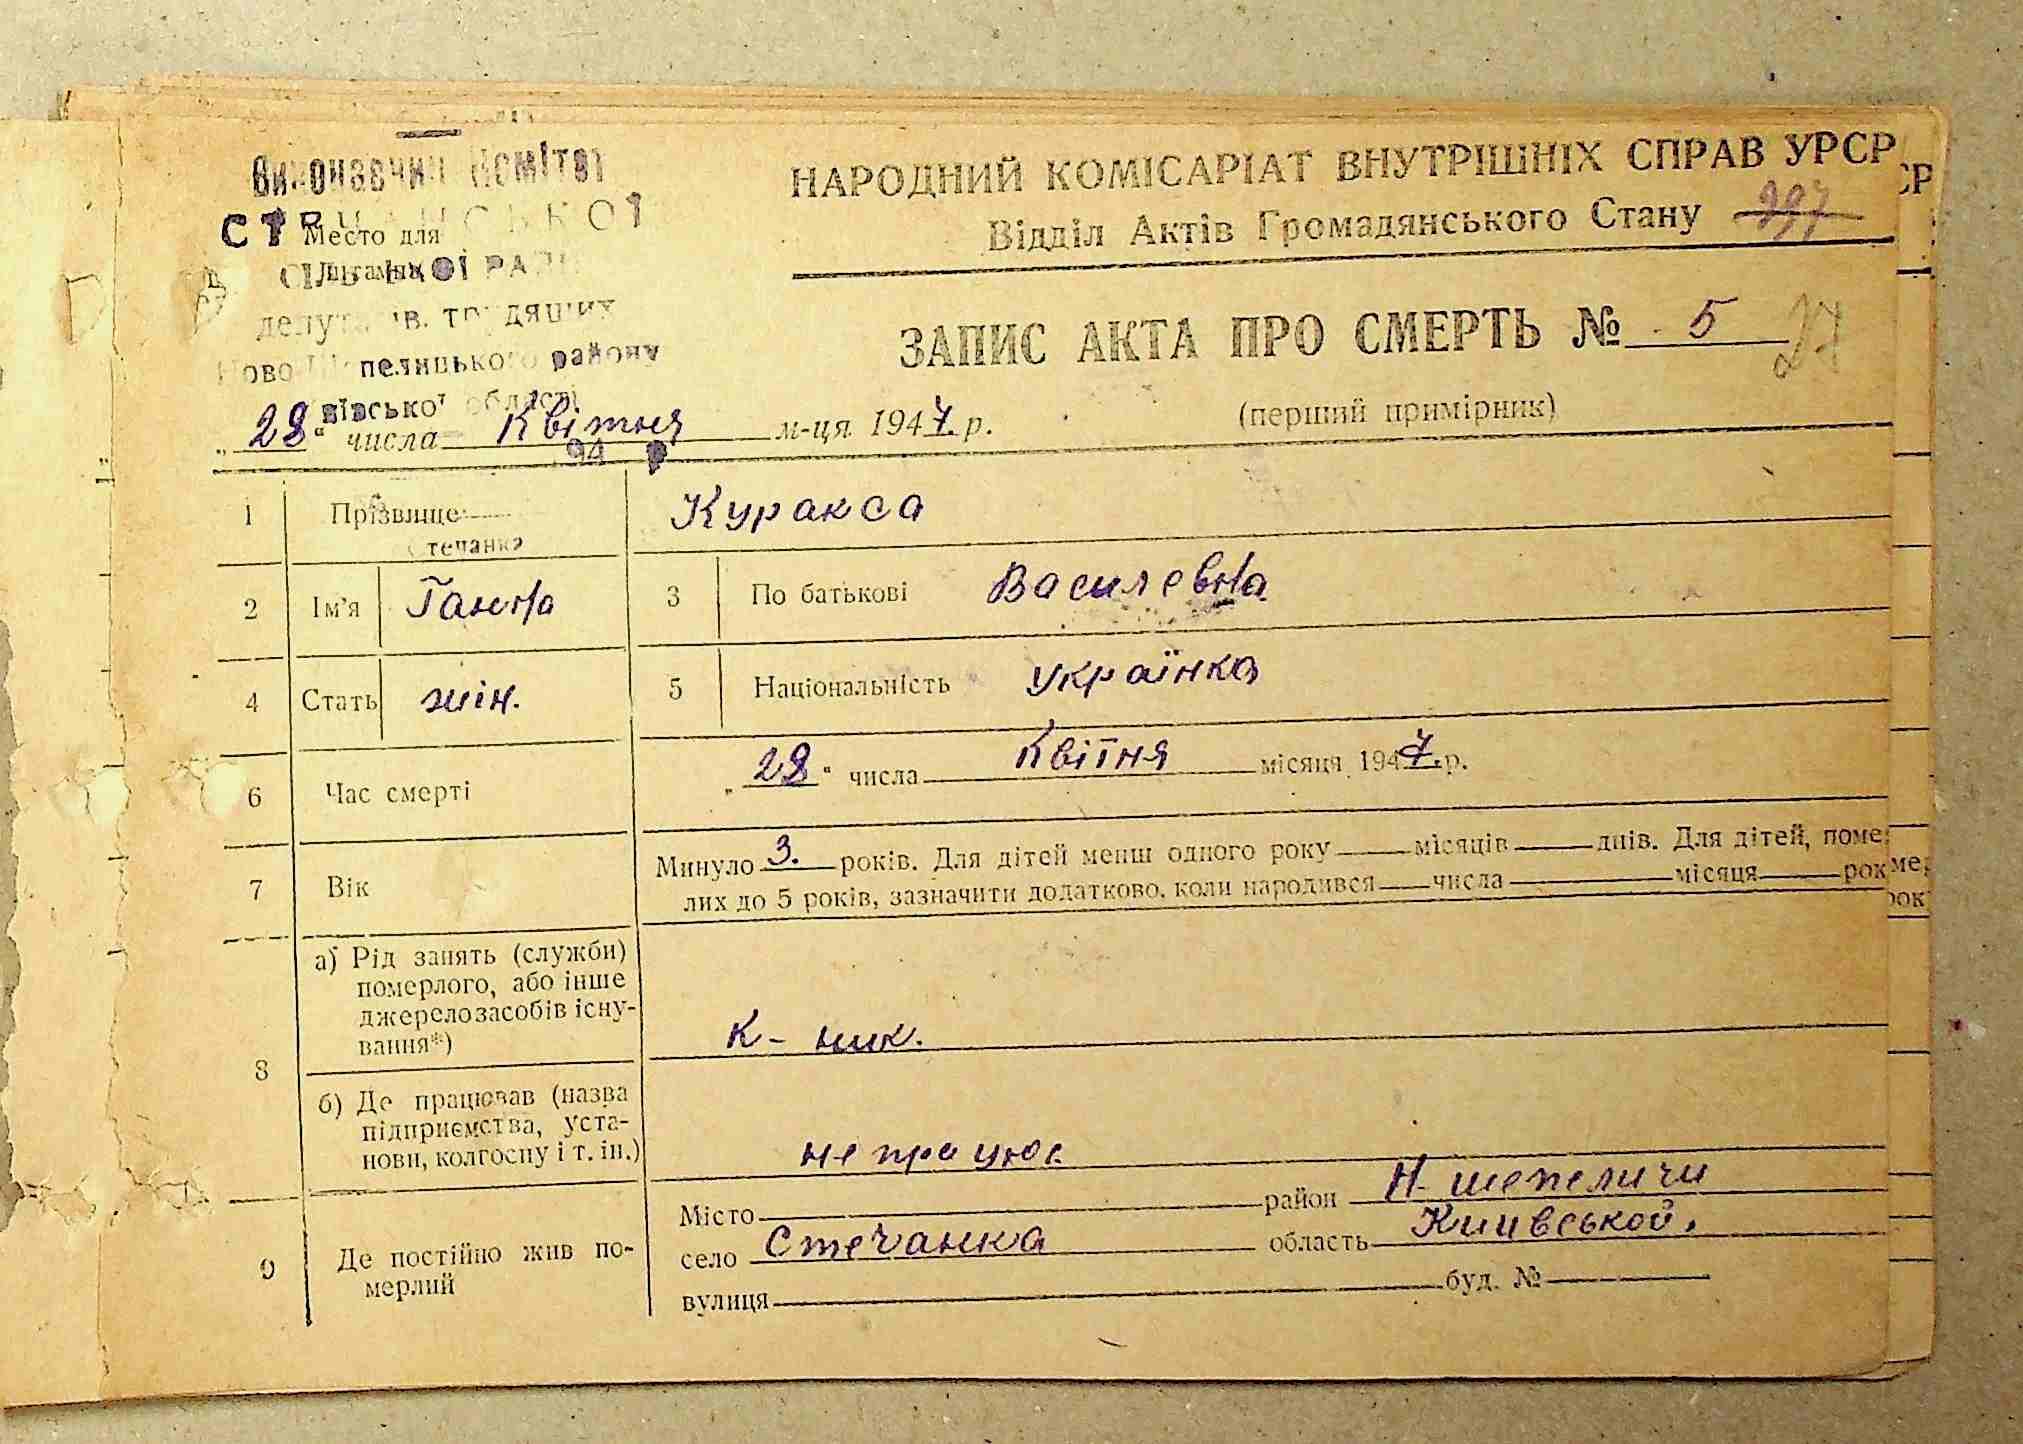 Виконавчий Комітет
НАРОДНИЙ КОМІСАРІАТ ВНУТРІШНІХ СПРАВ УРСР
СР
СТЕЧАНСЬКОЇ
Место для
Відділ Актів Громадянського Стану 397
СІЛЬСЬКОЇ РАДИ
штампа
депутатів трудящих
ЗАПИС АКТА ПРО СМЕРТЬ № 5
27
Ново-Шепелицького району
Київської області
„28“ числа Квітня м-ця 1947. р.
(перший примірник)
194 р
1 Прізвище Куракса
Стечанка
2 Ім'я Ганна 3 По батькові Василевна
4 Стать жін. 5 Національність українка
6 Час смерті „28“ числа Квітня місяця 1947. р.
7 Вік Минуло 3. років. Для дітей менш одного року місяців днів. Для дітей, поме
лих до 5 років, зазначити додатково, коли народився числа місяця рок
8 а) Рід занять (служби) померлого, або інше джерело засобів існування*) к-ник.
б) Де працював (назва підприємства, установи, колгоспу і т. ін.) не працює
9 Де постійно жив померлий
Місто район Н-шепеличи
село Стечанка область Киівськой.
вулиця буд. №